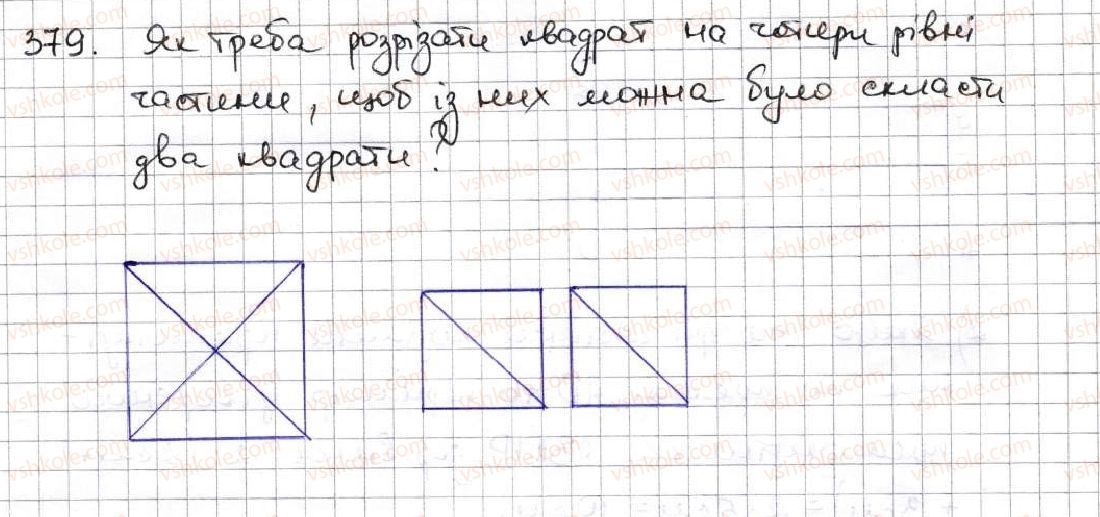 379. Як треба розрізати квадрат на чотири рівні
частини, щоб із них можна було скласти
два квадрати?